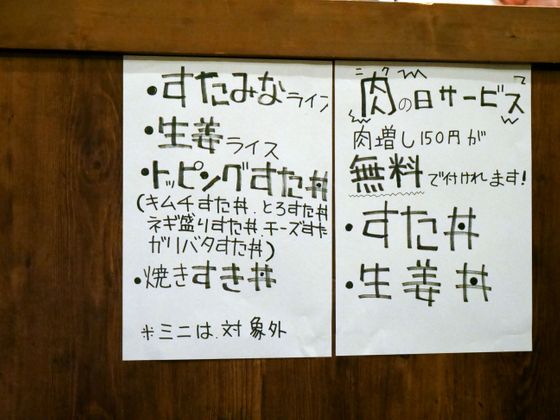 肉の日サービス
ニク
肉増し150円が
無料で付けれます!
・すた丼
・生姜丼
・すたみなライス
・生姜ライス
・トッピングすた丼
(キムチすた丼.とろすた丼
ネギ盛りすた丼.チーズすた
ガリバタすた丼)
・焼きすき丼
※ミニは.対象外